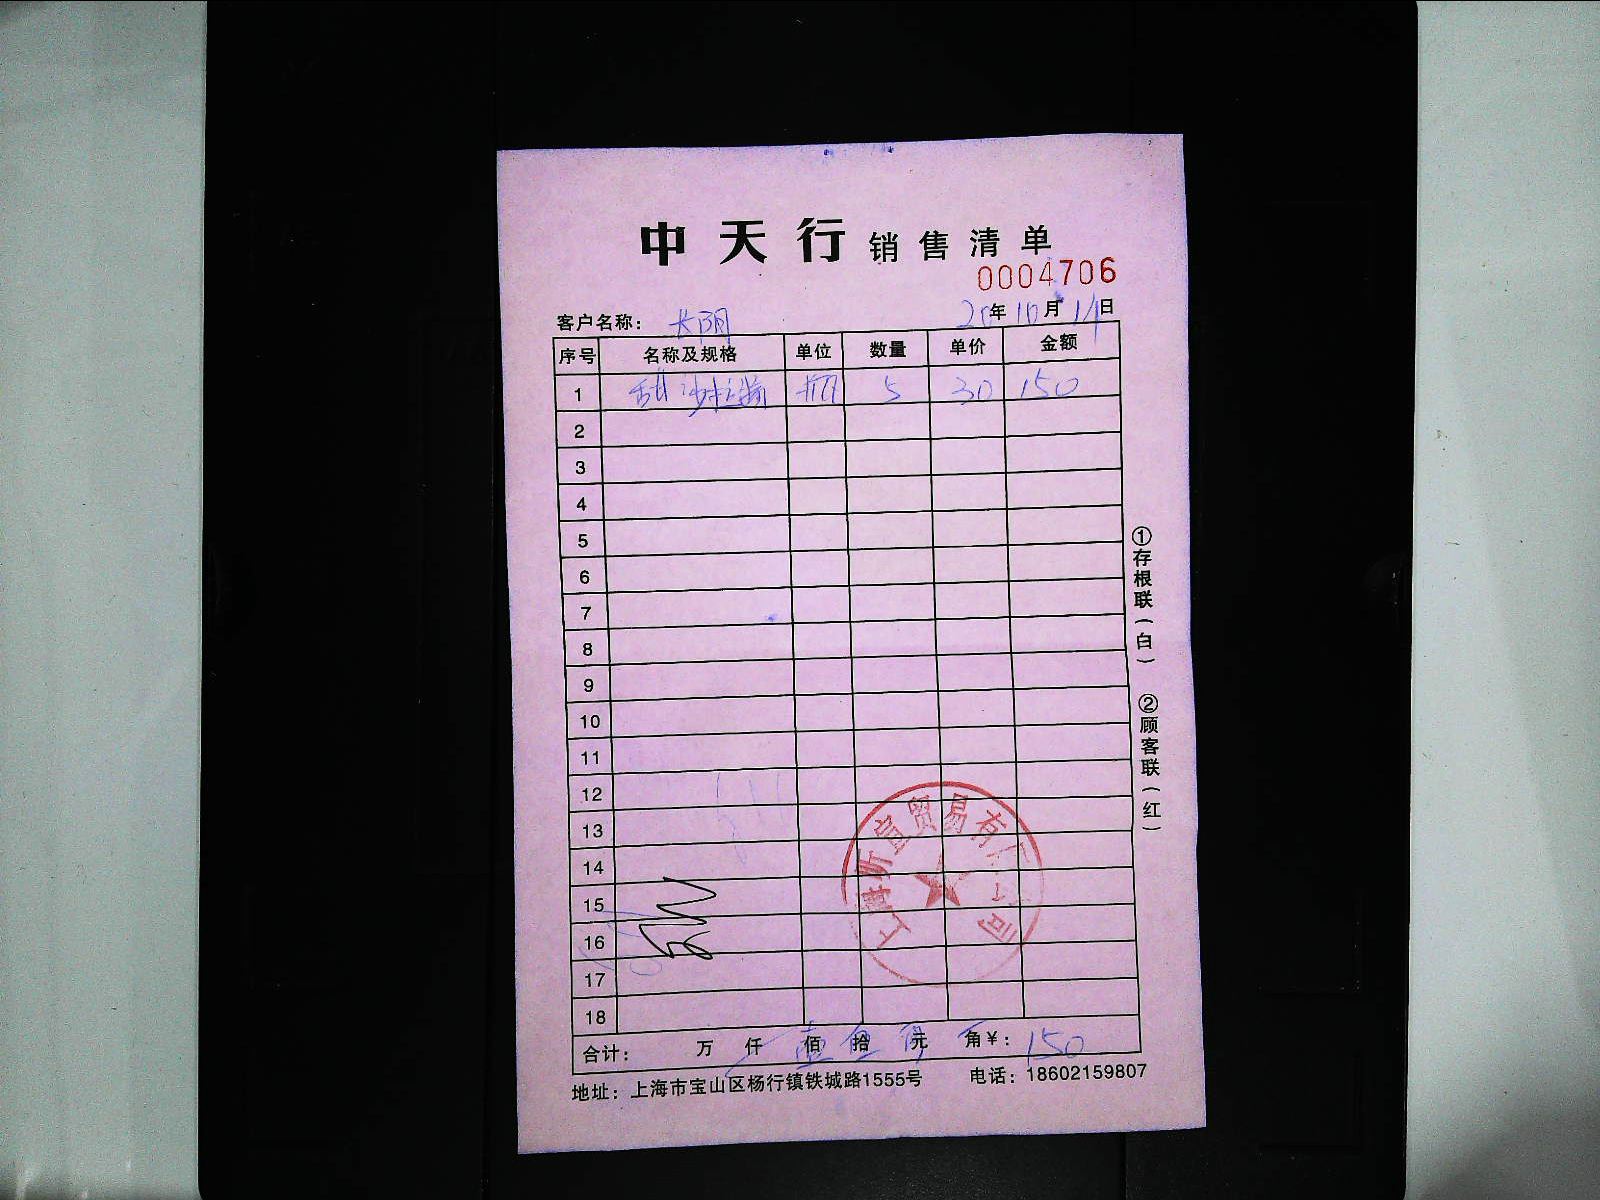 中天行 销售清单
0004706
客户名称： 长阴 20年10月11日
序号 名称及规格 单位 数量 单价 金额
1 甜沙拉 瓶 5 30 150
2
3
4
5
6
7
8
9
10
11
12
13
14
15
16
17
18
合计： 万 仟 壹佰 拾 元 角 ¥： 150
地址：上海市宝山区杨行镇铁城路1555号 电话：18602159807
①存根联（白） ②顾客联（红）
上海昕宣贸易有限公司